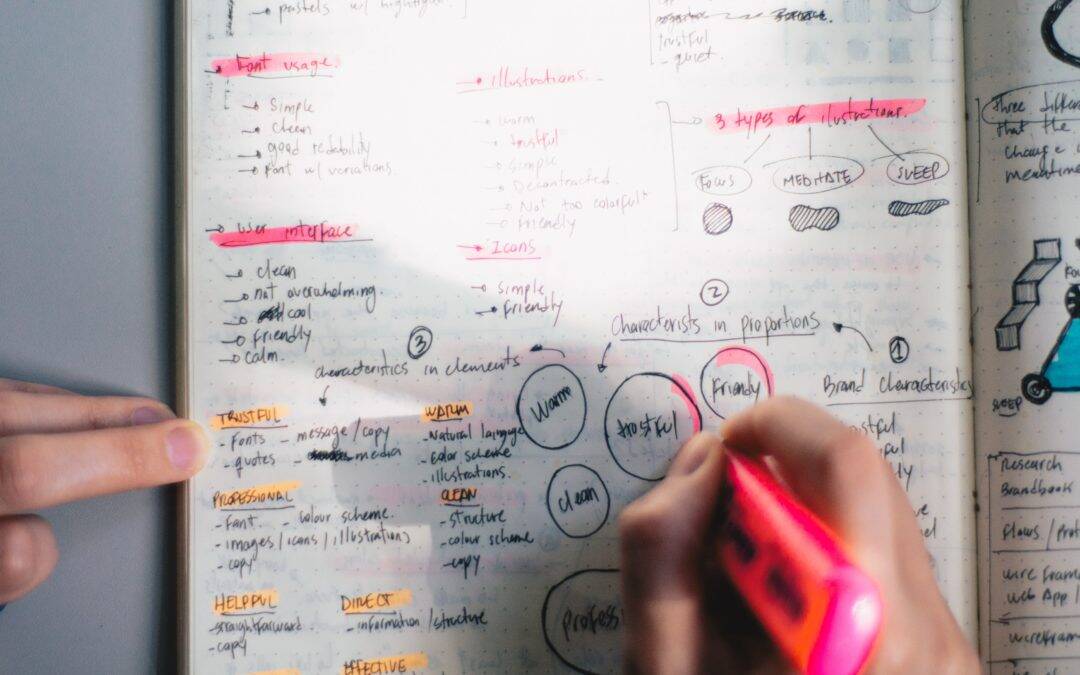 pastels w/
Font usage
Simple
clean
good redability
Font w/ variations
User interface
clean
not overwhelming.
cool
Friendly
calm.
illustrations
warm
trustful
simple
Decontracted.
Not too colorful*
Friendly
Icons
simple
Friendly
trustful
- quiet.
3 types of ilustrations.
Focus
MEDITATE
SLEEP
2
Characterists in proportions
1
Brand characteristics
3
characteristics in elements
TRUSTFUL
- Fonts
- message/copy
- quotes
- media
WARM
- Natural
- color scheme
- illustrations.
PROFESSIONAL
- Font.
- colour scheme.
- images/icons/illustrations
- copy
CLEAN
- structure
- colour scheme
- copy
HELPFUL
- straightforward
- copy
DIRECT
- information/structure
EFFECTIVE
Warm
trustful
Friendly
clean
profess
Three
that the
change
meantime
SLEEP
Research
Brandbook
Flows/
wire
web App/